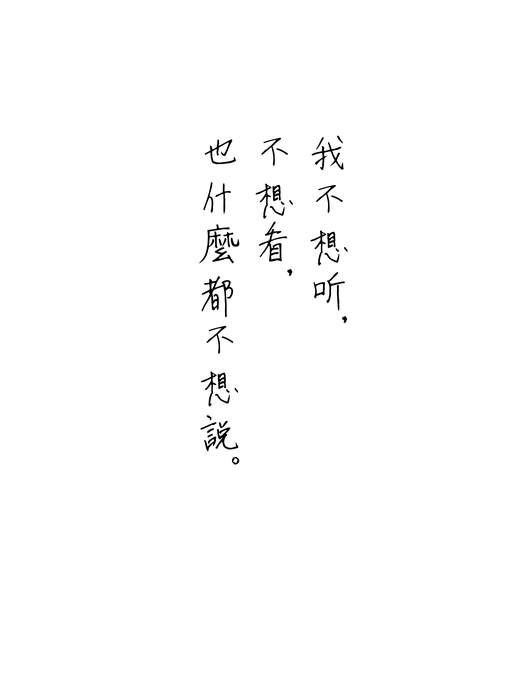 我不想听，
不想看，
也什麼都不想說。